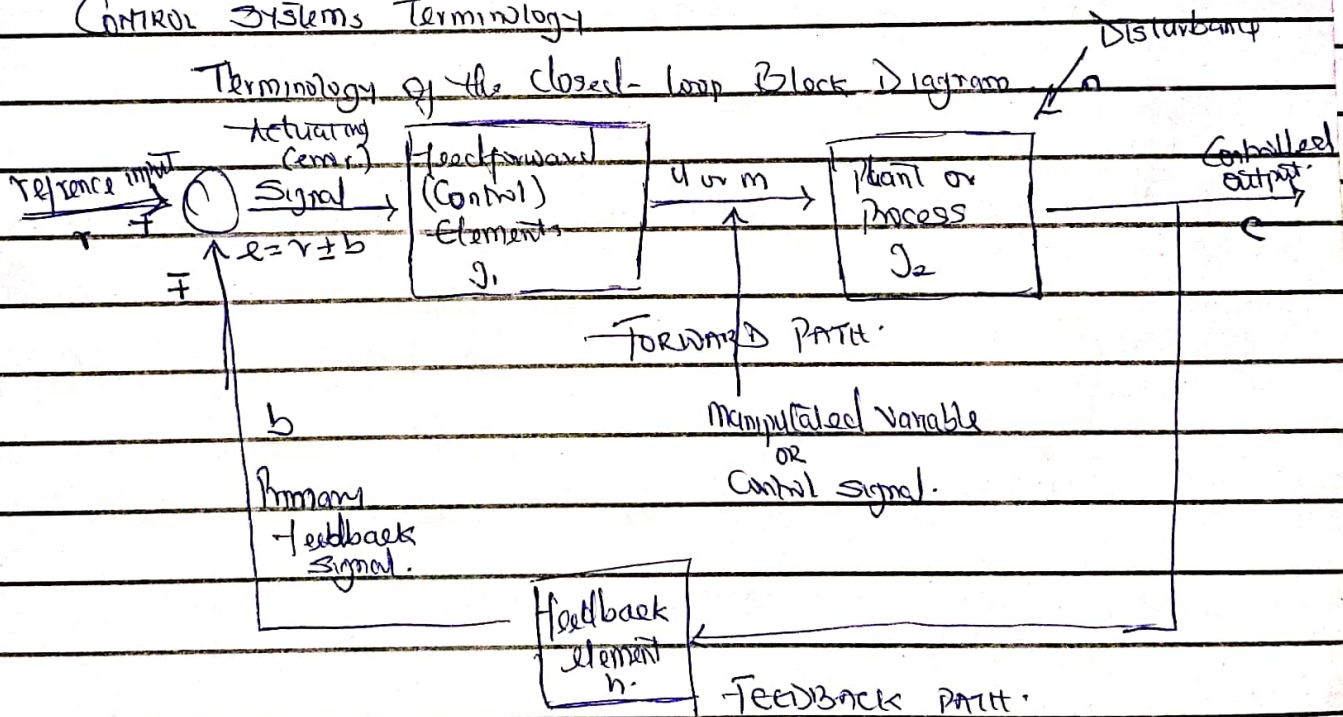 CONTROL Systems Terminology
Disturbance
Terminology of the closed-loop Block Diagram
n
Actuating
(error)
Signal
e = r ± b
refrence input
r
+
∓
Feedforward
(Control)
Elements
g₁
u or m
Plant or
Process
g₂
Controlled
output.
c
FORWARD PATH.
Manipulated Variable
OR
Control Signal.
b
Primary
feedback
signal.
Feedback
element
h.
FEEDBACK PATH.